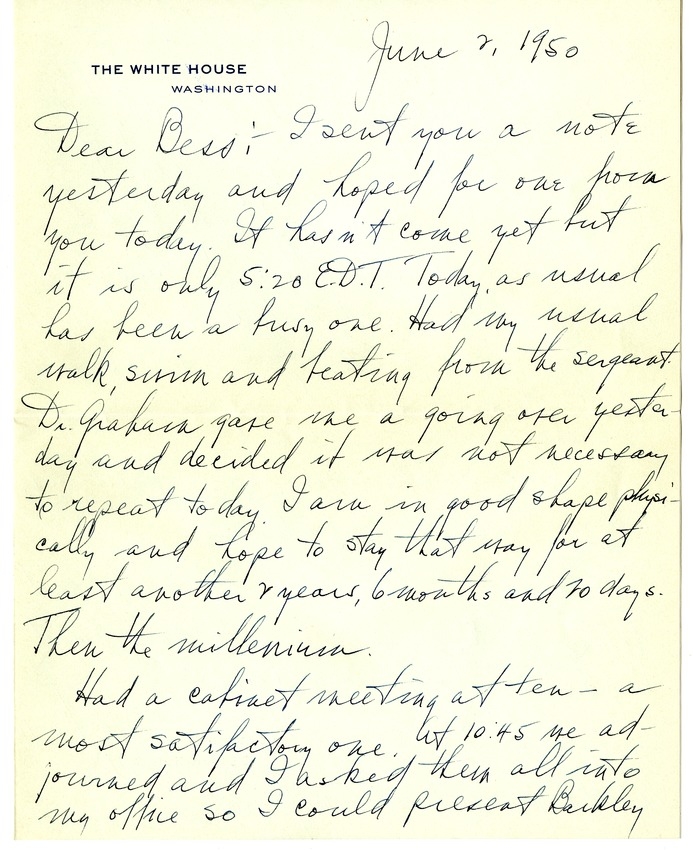 June 2, 1950
THE WHITE HOUSE
WASHINGTON
Dear Bess:- I sent you a note
yesterday and hoped for one from
you today. It hasn't come yet but
it is only 5:20 E.D.T. Today, as usual
has been a busy one. Had my usual
walk, swim and beating from the sergeant.
Dr. Graham gave me a going over yester-
day and decided it was not necessary
to repeat today. I am in good shape physi-
cally and hope to stay that way for at
least another 2 years, 6 months and 20 days.
Then the millenium.
Had a cabinet meeting at ten - a
most satifactory one. At 10:45 we ad-
journed and I asked them all into
my office so I could present Barkley